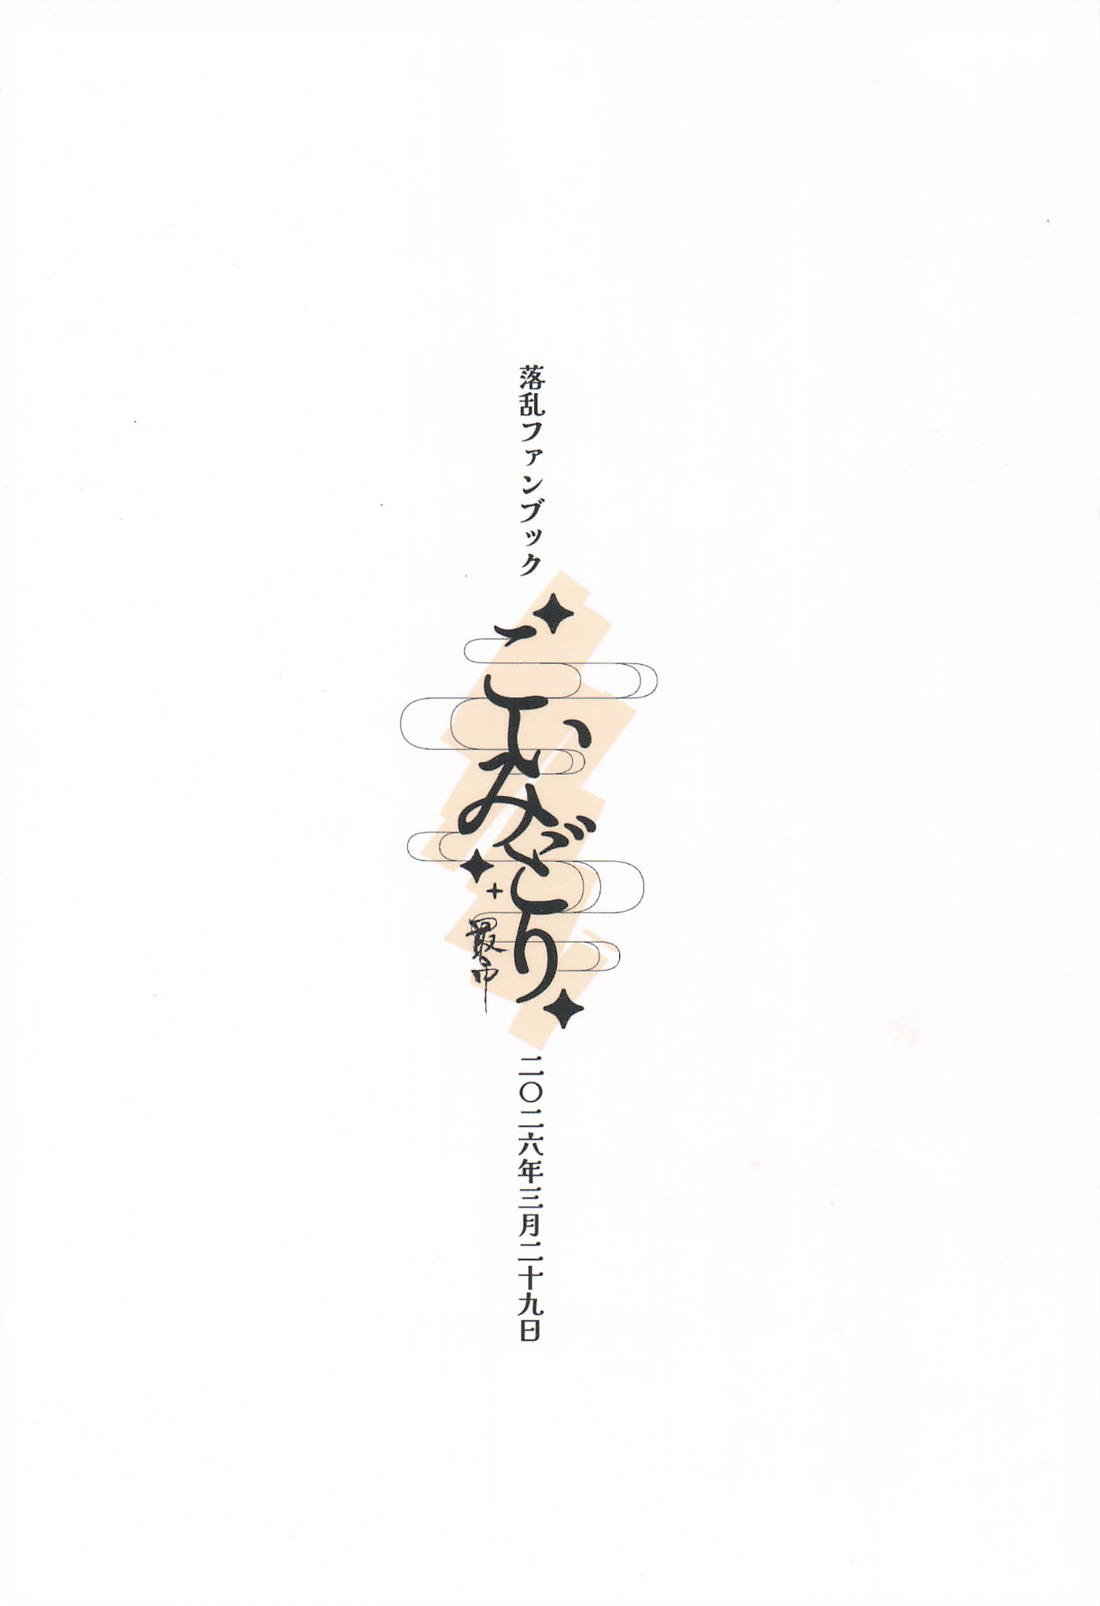 落乱ファンブック
こいみどり
+
二〇二六年三月二十九日